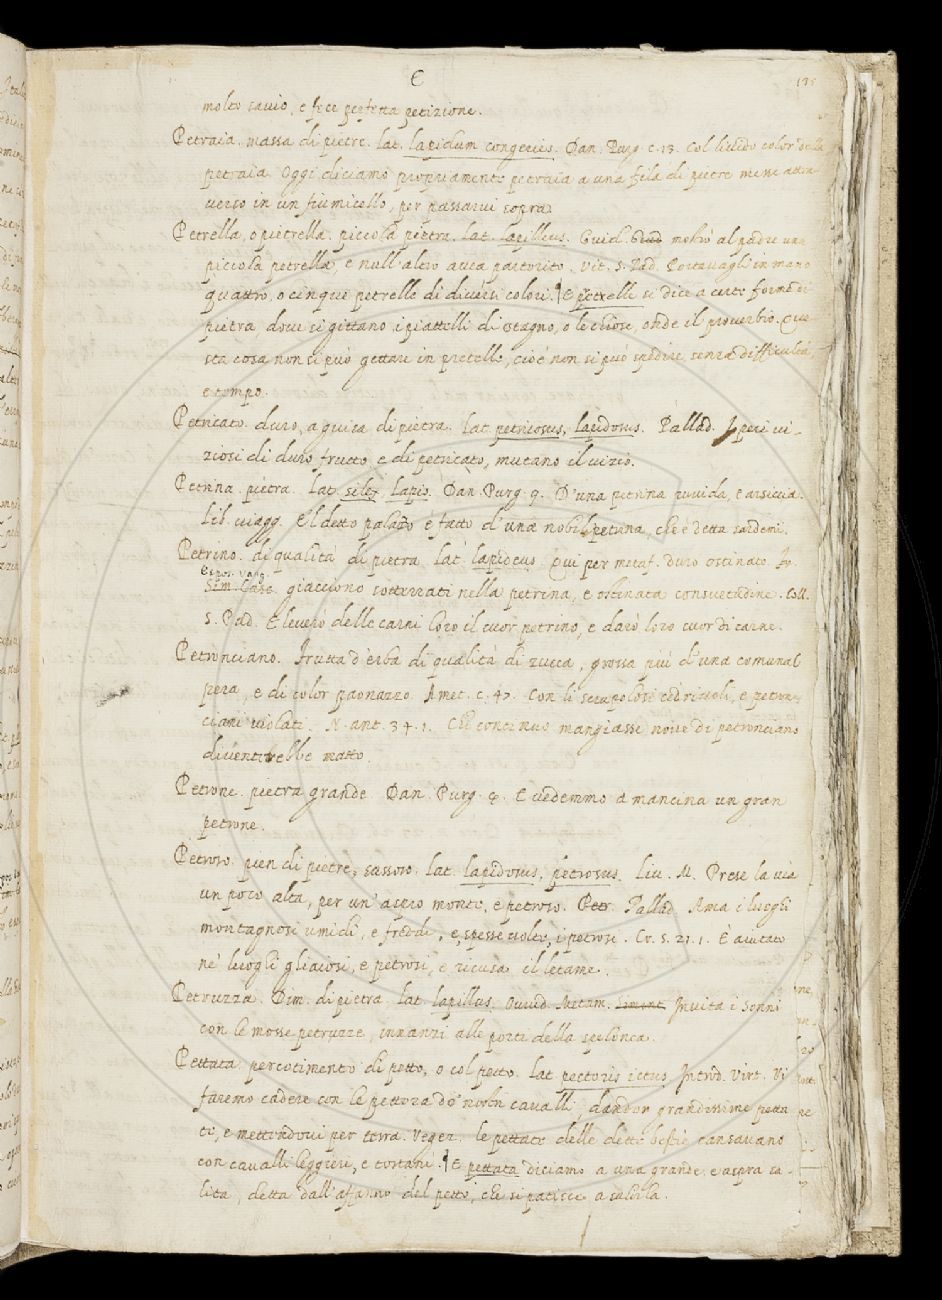 E 195
molto savio, e fece perfetta petizione.
Petraia. massa di pietre. lat. lapidum congeries. Dan. Purg. c. 13. Col livido color della
petraia. Oggi diciamo propriamente petraia a una fila di pietre messe attra-
verso in un fiumicello, per passarvi sopra.
Petrella, o pietrella. piccola pietra. lat. lapillus. Guid. mostrò al padre una
piccola petrella, e null'altro avea partorito. Vit. S. Pad. Portavagli in mano
quattro, o cinque petrelle di diversi colori. ¶ E petrelle si dice a certe forme di
pietra dove si gittano i piattelli di stagno, o le chiose, onde il proverbio. Que
sta cosa non si può gettare in pretelle, cioè non si può spedire senza difficultà,
e tempo.
Petricato. duro, a guisa di pietra. lat. petricosus, lapidosus. Pallad. I peri vi-
ziosi di duro frutto e di petricato, mutano il vizio.
Petrina. pietra. lat. silex, lapis. Dan. Purg. 9. D'una petrina ruvida, e arsiccia.
Lib. viagg. E 'l detto palazzo è fatto d'una nobil petrina, che è detta sardoni.
Petrino. di qualità di pietra. lat. lapideus. Qui per metaf. duro ostinato. Fr.
Espos. Vang.
Sim. Casc. giacciono sotterrati nella petrina, e ostinata consuetudine. Coll.
S. Pad. E leverò delle carni loro il cuor petrino, e darò loro cuor di carne.
Petronciano. frutta d'erba di qualità di zucca, grossa più d'una comunal
pera, e di color paonazzo. Amet. c. 47. Con li scrupolosi cedriuoli, e petron-
ciani violati. N. ant. 34. 1. Che continuo mangiasse nove dì petronciano
diventerebbe matto.
Petrone. pietra grande. Dan. Purg. 4. E vedemmo a mancina un gran
petrone.
Petroso. pien di pietre, sassoso. lat. lapidosus, petrosus. Liv. M. Prese la via
un poco alta, per un aspro monte, e petroso. Petr. Pallad. Ama i luoghi
montagnosi umidi, e freddi, e, spesse volte, i petrosi. Cr. 5. 21. 1. È aiutato
ne' luoghi ghiaiosi, e petrosi, e ricusa il letame.
Petruzza. Dim. di pietra. lat. lapillus. Ovvid. Metam. Invita i sonni
con le mosse petruzze, innanzi alle porti della spelonca.
Pettata. percotimento di petto, o col petto. lat. pectoris ictus. Introd. Virt. Vi
faremo cadere con le pettora de' nostri cavalli, dandovi grandissime petta
te, e mettendovi per terra. Vegez. le pettate delle dette bestie cansavano
con cavalli leggieri, e tostani. ¶ E pettata diciamo a una grande e aspra sa-
lita, detta dall'affanno del petto, che si patisce a salirla.